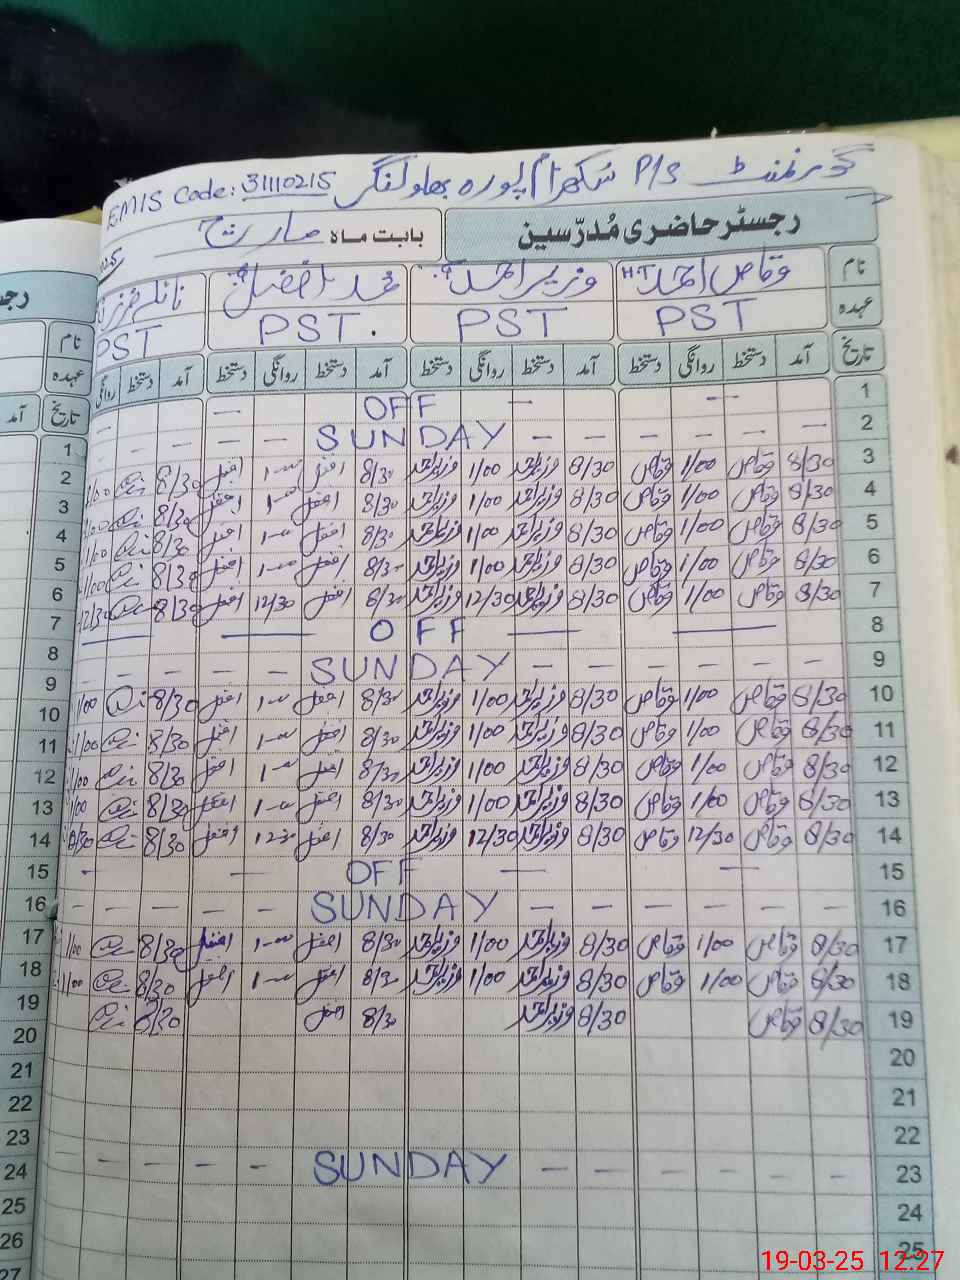 گورنمنٹ P/S سکھرام پورہ بھاولنگر EMIS Code: 31110215
رجسٹر حاضری مُدرّسین بابت ماہ مارچ
نام وقاص احمد H.T وزیر احمد محمد افضل
عہدہ PST PST PST. PST
تاریخ آمد دستخط روانگی دستخط آمد دستخط روانگی دستخط آمد دستخط روانگی دستخط آمد دستخط روانگی
1 — — OFF —
2 SUNDAY — — — —
3 8/30 وقاص 1/00 وقاص 8/30 وزیر احمد 1/00 وزیر احمد 8/30 افضل 1—00 افضل 8/30
4 8/30 وقاص 1/00 وقاص 8/30 وزیر احمد 1/00 وزیر احمد 8/30 افضل 1—00 افضل 8/30
5 8/30 وقاص 1/00 وقاص 8/30 وزیر احمد 1/00 وزیر احمد 8/30 افضل 1—00 افضل 8/30 1/00
6 8/30 وقاص 1/00 وقاص 8/30 وزیر احمد 1/00 وزیر احمد 8/30 افضل 1—00 افضل 8/30 1/00
7 8/30 وقاص 1/00 وقاص 8/30 وزیر احمد 12/30 وزیر احمد 8/30 افضل 12/30 افضل 8/30 12/30
8 — — OFF — —
9 — — — — SUNDAY — — — —
10 8/30 وقاص 1/00 وقاص 8/30 وزیر احمد 1/00 وزیر احمد 8/30 افضل 1—00 افضل 8/30 1/00
11 8/30 وقاص 1/00 وقاص 8/30 وزیر احمد 1/00 وزیر احمد 8/30 افضل 1—00 افضل 8/30 1/00
12 8/30 وقاص 1/00 وقاص 8/30 وزیر احمد 1/00 وزیر احمد 8/30 افضل 1—00 افضل 8/30 1/00
13 8/30 وقاص 1/00 وقاص 8/30 وزیر احمد 1/00 وزیر احمد 8/30 افضل 1—00 افضل 8/30 1/00
14 8/30 وقاص 12/30 وقاص 8/30 وزیر احمد 12/30 وزیر احمد 8/30 افضل 12—30 افضل 8/30
15 — — OFF — —
16 — — — — SUNDAY — — — —
17 8/30 وقاص 1/00 وقاص 8/30 وزیر احمد 1/00 وزیر احمد 8/30 افضل 1—00 افضل 8/30 1/00
18 8/30 وقاص 1/00 وقاص 8/30 وزیر احمد 1/00 وزیر احمد 8/30 افضل 1—00 افضل 8/30 1/00
19 8/30 وقاص 8/30 وزیر احمد 8/30 افضل 8/30
20
21
22
23 — — — — SUNDAY — — — —
24
25
نام
عہدہ
تاریخ آمد
1
2
3
4
5
6
7
8
9
10
11
12
13
14
15
16
17
18
19
20
21
22
23
24
25
26
27
19-03-25 12:27